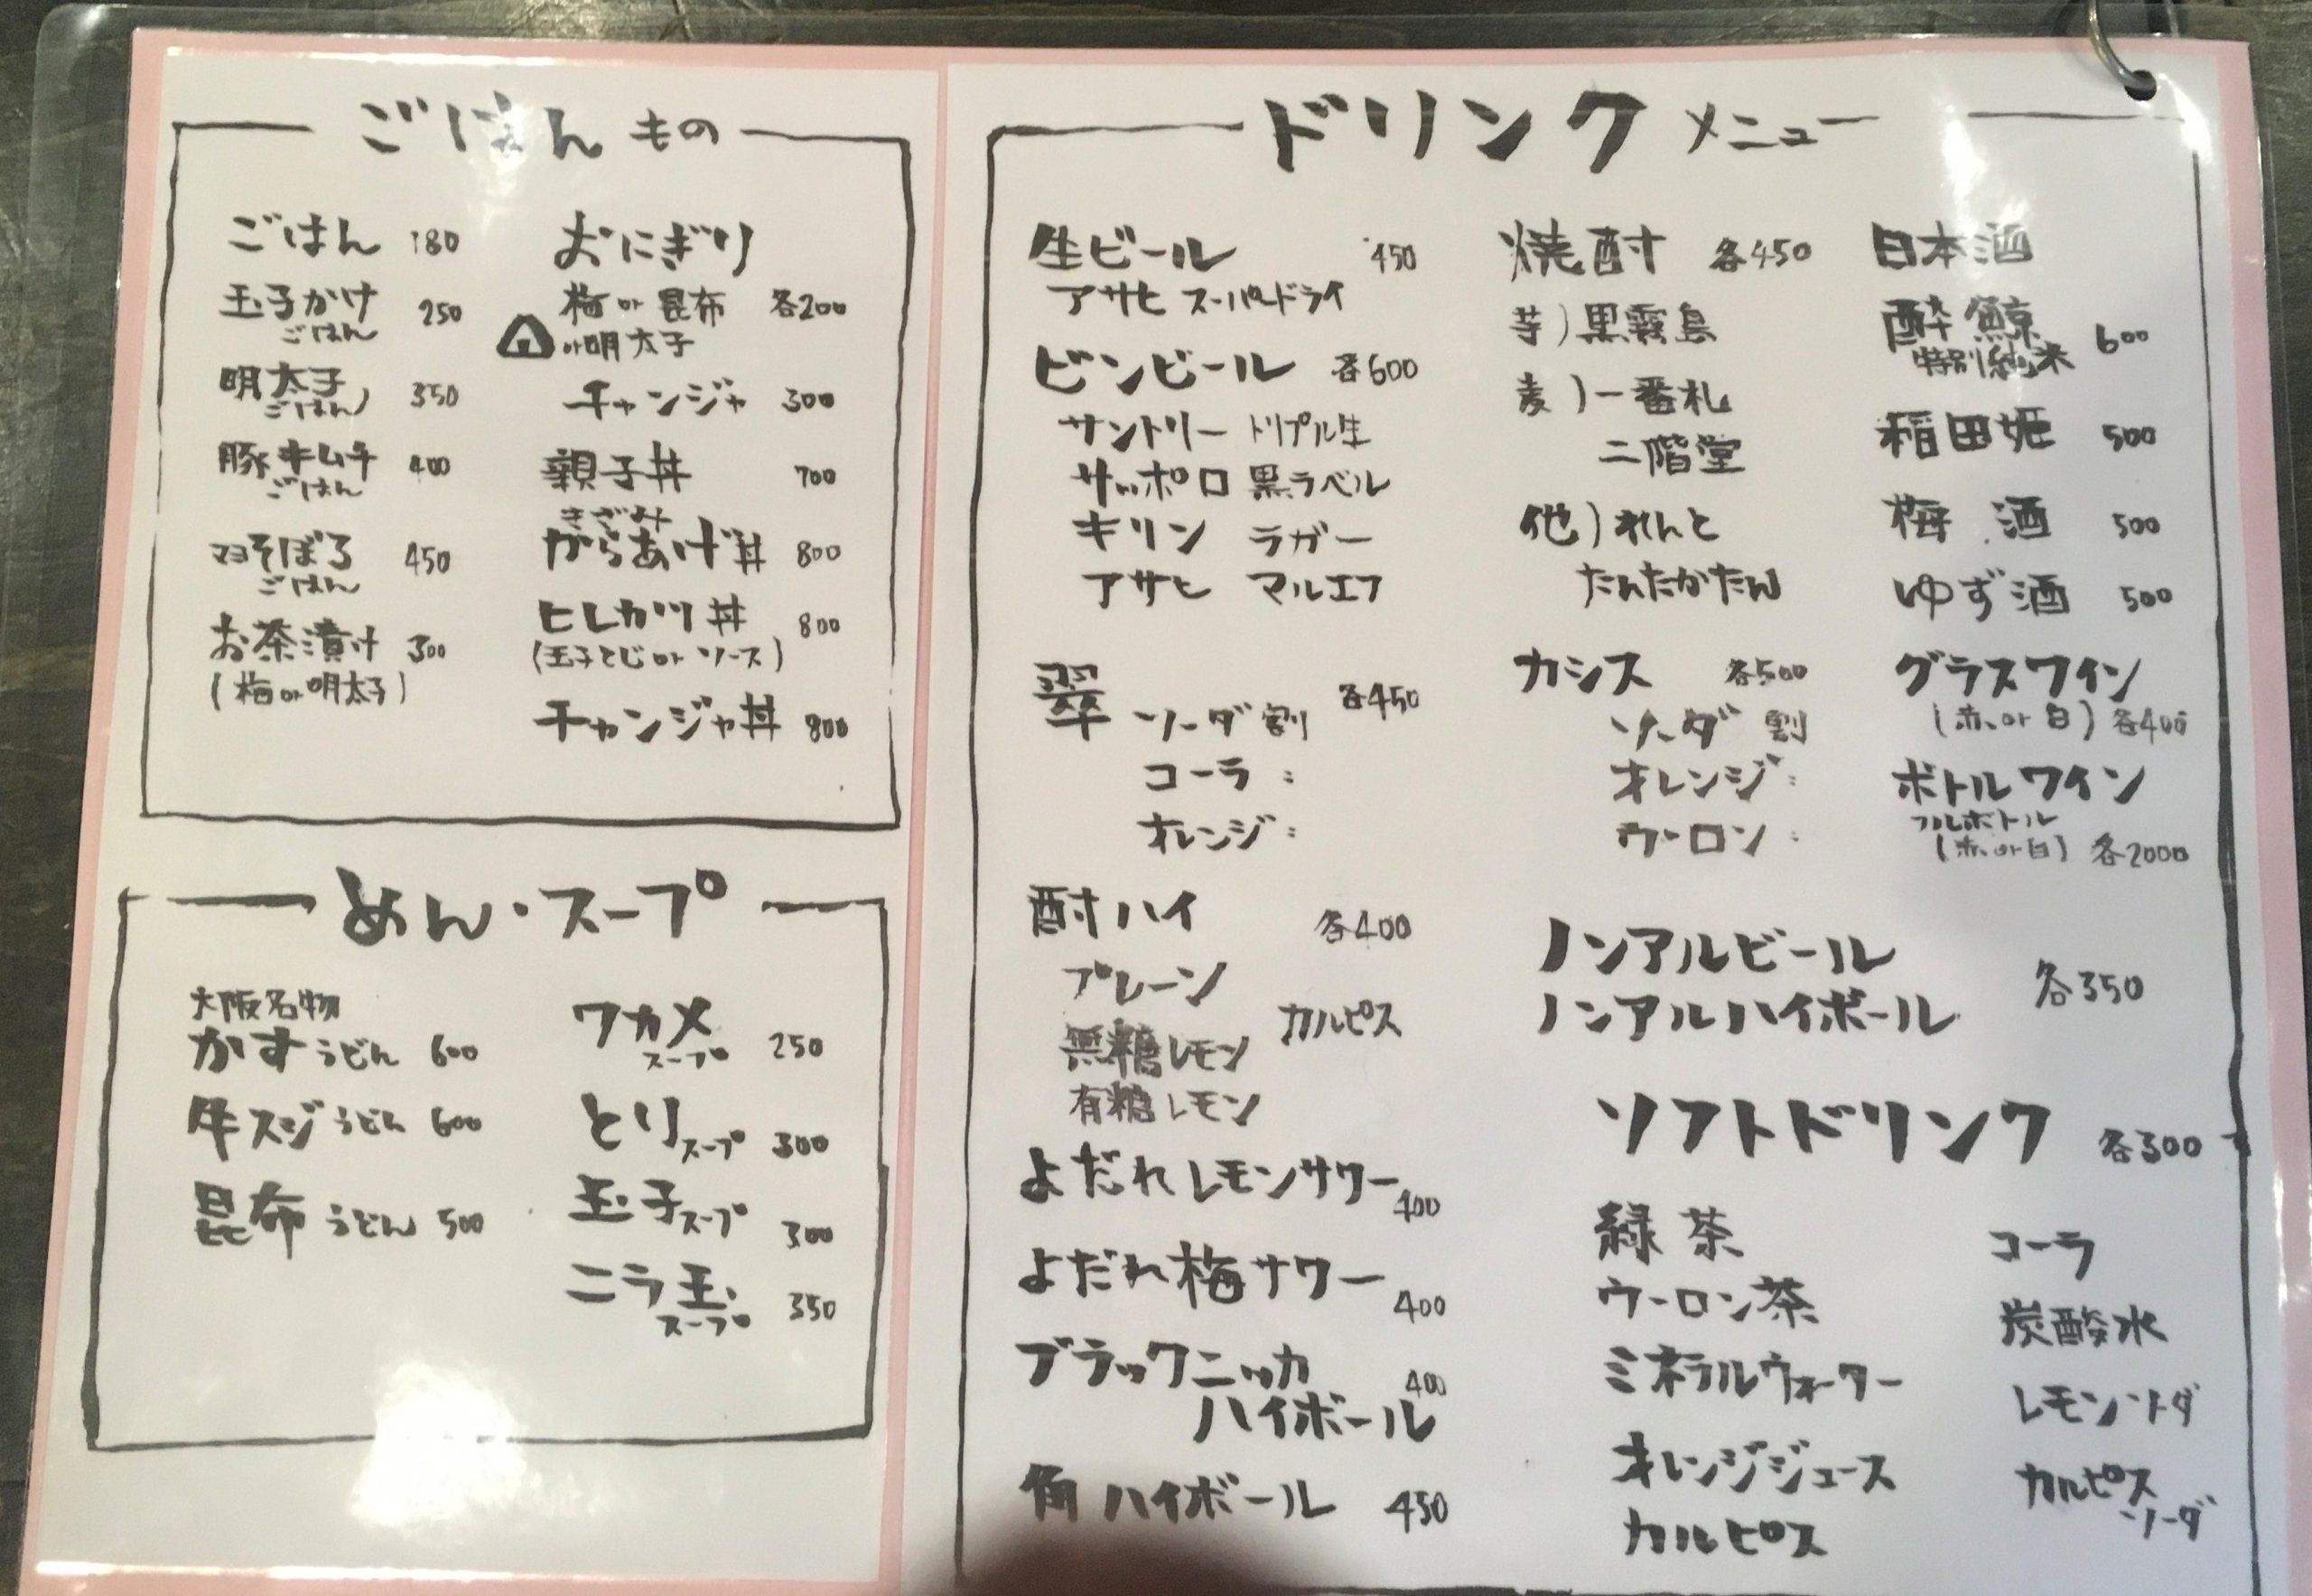 ごはんもの
ごはん 180
玉子かけ
ごはん 250
明太子
ごはん 350
豚キムチ
ごはん 400
マヨそぼろ
ごはん 450
お茶漬け 300
(梅or明太子)
おにぎり
梅or昆布 各200
or明太子
チャンジャ 300
親子丼 700
きざみ
からあげ丼 800
ヒレカツ丼 800
(玉子とじorソース)
チャンジャ丼 800
めん・スープ
大阪名物
かすうどん 600
牛スジうどん 600
昆布うどん 500
ワカメ
スープ 250
とりスープ 300
玉子スープ 300
ニラ玉
スープ 350
ドリンクメニュー
生ビール 450
アサヒ スーパードライ
ビンビール 各600
サントリー トリプル生
サッポロ 黒ラベル
キリン ラガー
アサヒ マルエフ
翠 各450
ソーダ割
コーラ :
オレンジ :
酎ハイ 各400
プレーン
カルピス
無糖レモン
有糖レモン
よだれレモンサワー 400
よだれ梅サワー 400
ブラックニッカ 400
ハイボール
角ハイボール 450
焼酎 各450
芋)黒霧島
麦)一番札
二階堂
他)れんと
たんたかたん
カシス 各500
ソーダ割
オレンジ :
ウーロン :
日本酒
酔鯨 600
特別純米
稲田姫 500
梅酒 500
ゆず酒 500
グラスワイン
(赤or白) 各400
ボトルワイン
フルボトル
(赤or白) 各2000
ノンアルビール
ノンアルハイボール 各350
ソフトドリンク 各300
緑茶
ウーロン茶
ミネラルウォーター
オレンジジュース
カルピス
コーラ
炭酸水
レモンソーダ
カルピス
ソーダ